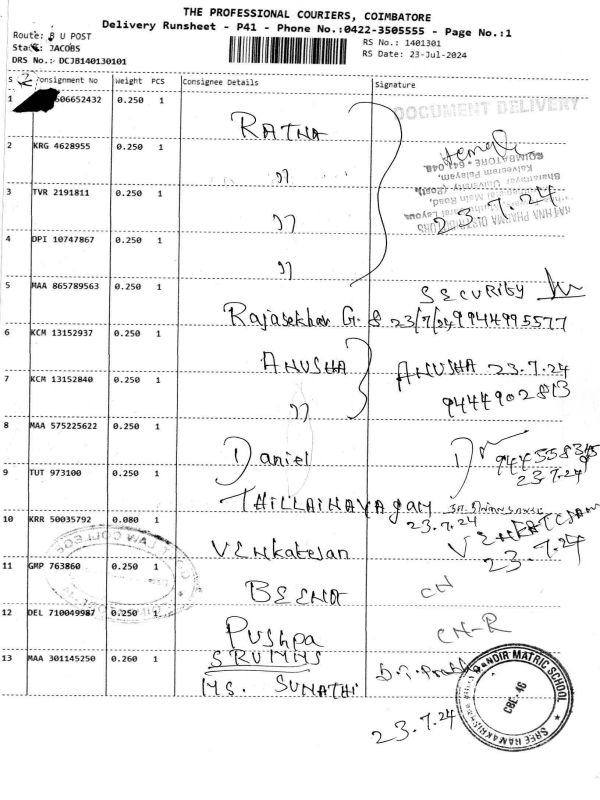 THE PROFESSIONAL COURIERS, COIMBATORE
Delivery Runsheet - P41 - Phone No.:0422-3505555 - Page No.:1
Route: B U POST
RS No.: 1401301
Staff: JACOBS
RS Date: 23-Jul-2024
DRS No.: DCJB140130101
S Consignment No Weight PCS Consignee Details Signature
1 606652432 0.250 1 RATNA
DOCUMENT DELIVERY
2 KRG 4628955 0.250 1 "
COIMBATORE - 641 046
Kalveerampalayam,
Bharathiar University (Post),
3 TVR 2191811 0.250 1 " 23.7.24
4 DPI 10747867 0.250 1 "
5 MAA 865789563 0.250 1 SECURITY
Rajasekhar G. S 23/7/24, 9944995577
6 KCM 13152937 0.250 1 ANUSHA ANUSHA 23.7.24
7 KCM 13152840 0.250 1 " 9444902813
8 MAA 575225622 0.250 1 Daniel
23.7.24
9 TUT 973100 0.250 1 THILLAINAYAgAM
23.7.24
10 KRR 50035792 0.080 1 VENkatesan VENKATESAN
23.7.24
LAW COLLEGE
11 GMP 763860 0.250 1 BEENA CN
12 DEL 710049987 0.250 1 Pushpa CN-R
13 MAA 301145250 0.260 1 SRUMMS
MS. SUMATHI
23.7.24
MANDIR MATRIC SCHOOL
CBE-46